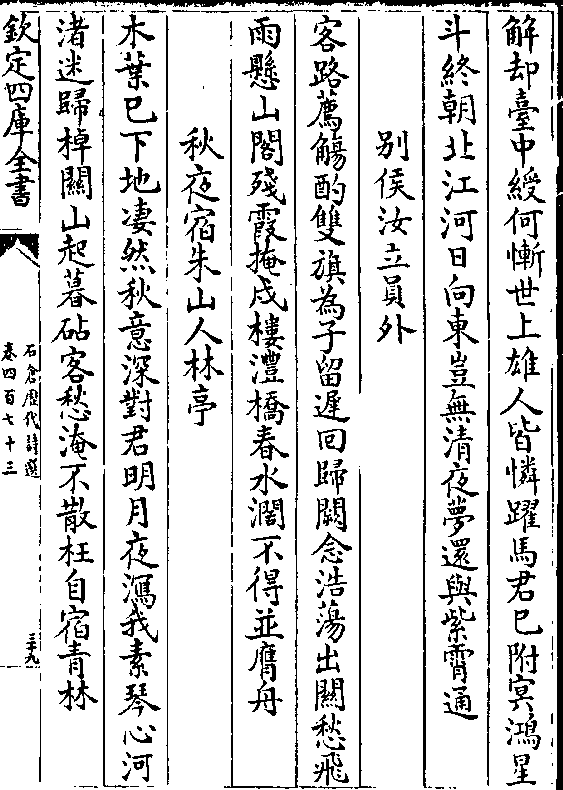 解却臺中綬何慚世上雄人皆憐躍馬君巳附冥鴻星
斗終朝北江河日向東豈無清夜夢還與紫霄通
别侯汝立員外
客路薦觴酌雙旗為子留遲回歸闕念浩蕩出關愁飛
雨懸山閣殘霞掩戍樓澧橋春水濶不得並膺舟
秋夜宿朱山人林亭
木葉巳下地凄然秋意深對君明月夜瀉我素琴心河
渚迷歸棹關山起暮砧客愁淹不散枉自宿青林
欽定四庫全書
石倉歷代詩選
卷四百七十三
三十九